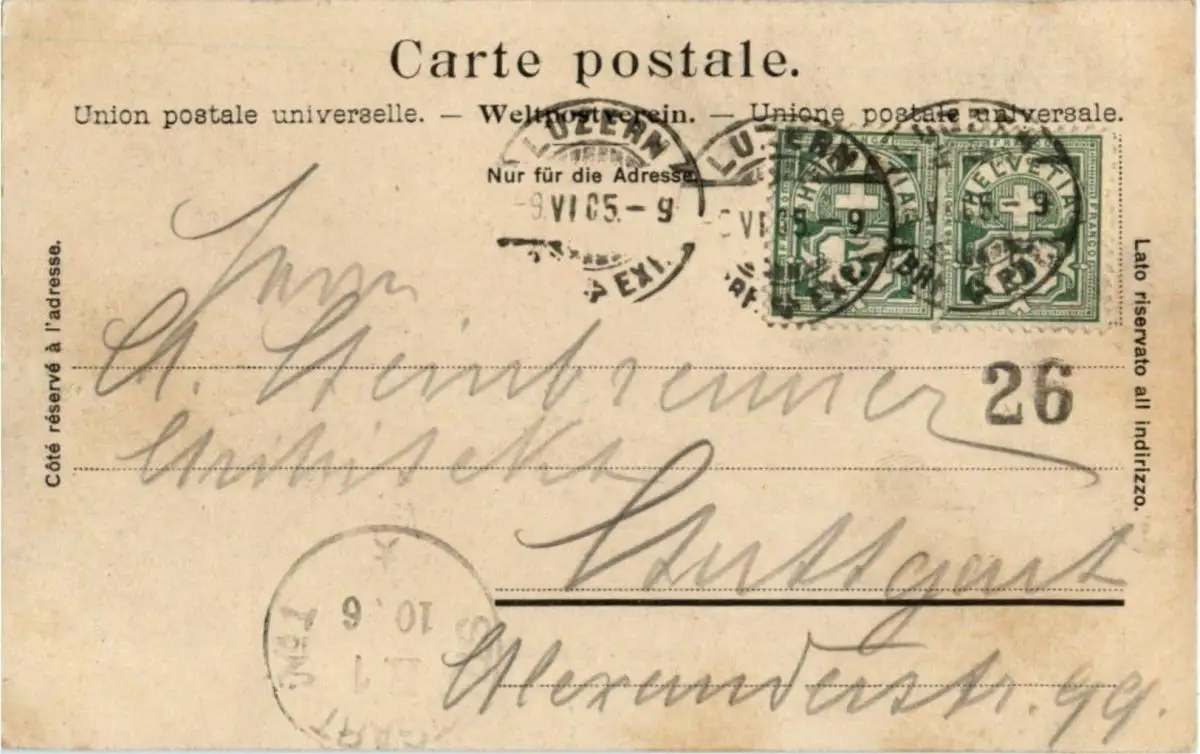 Carte postale.
Union postale universelle. — Weltpostverein. — Unione postale universale.
Nur für die Adresse.
LUZERN
-9.VI 05.-9
EXP.
LUZERN
VI 05.-9
EXP.
HELVETIA
HELVETIA
FRANCO
Côté réservé à l'adresse.
Lato riservato all indirizzo.
Herrn
A. Steinbrenner
26
Architekt
Stuttgart
Alexanderstr. 99.
No. 1
10. 6